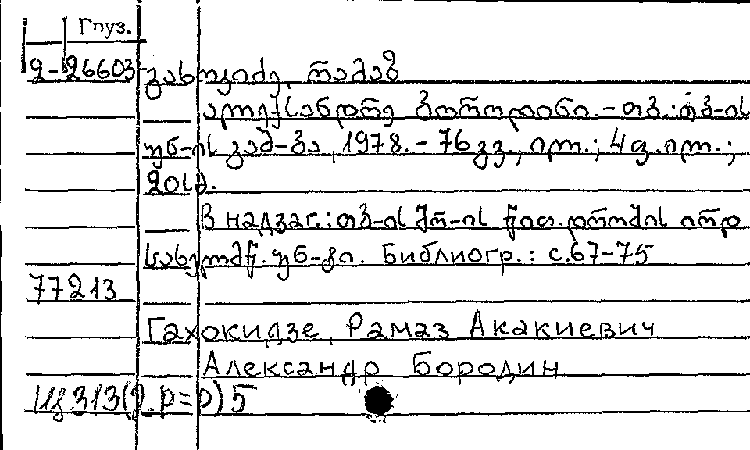 Груз.
2-26603 გახოკიძე, რამაზ
ალექსანდრე ბოროდინი. - თბ.: თბ-ის
უნ-ის გამ-ბა, 1978. - 76 გვ., ილ.; 4 ფ. ილ.;
20 სმ.
В надзаг.: თბ-ის შრ-ის წით. დროშის ორდ
სახელმწ. უნ-ტი. Библиогр.: с. 67-75
77213
Гахокидзе, Рамаз Акакиевич
Александр Бородин
313 5